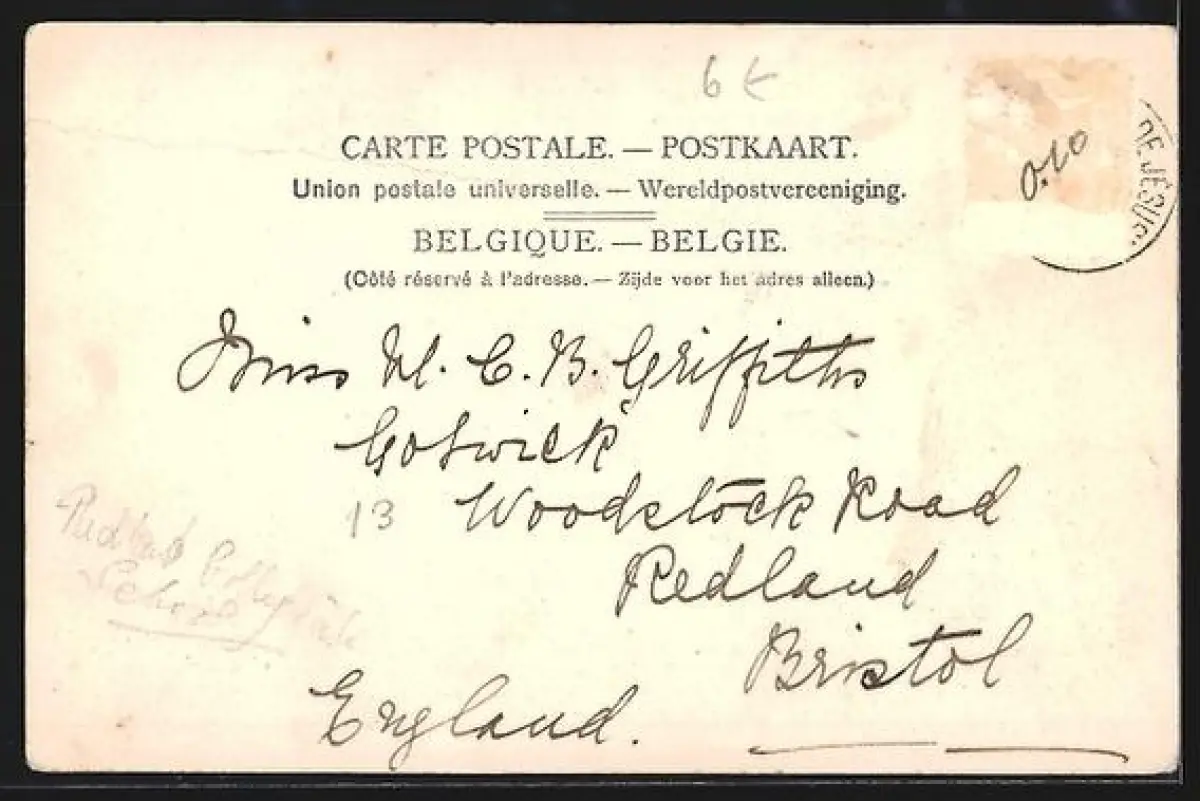 6 €
CARTE POSTALE. — POSTKAART.
Union postale universelle. — Wereldpostvereeniging.
BELGIQUE. — BELGIE.
(Côté réservé à l'adresse. — Zijde voor het adres alleen.)
0.10
DE JÉSUS
Miss W. C. B. Griffiths
Goswick
13 Woodstock Road
Redland
Bristol
England.
Redland Collegiate
School